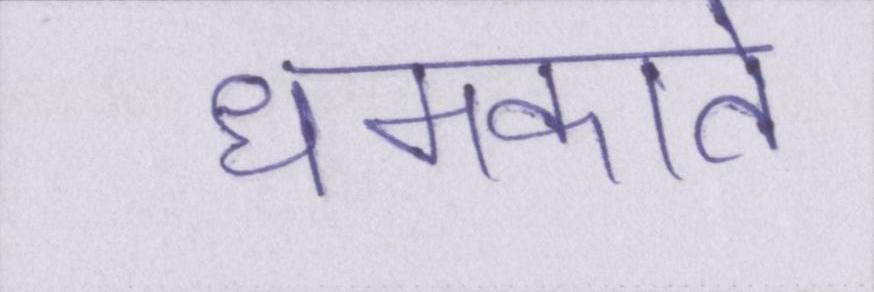 धमकाते